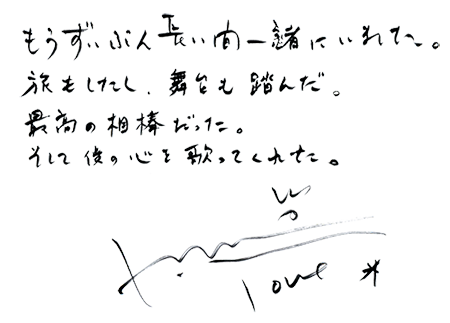 もうずいぶん長い間一緒にいれた。
旅もしたし、舞台も踏んだ。
最高の相棒だった。
そして俺の心を歌ってくれた。
love